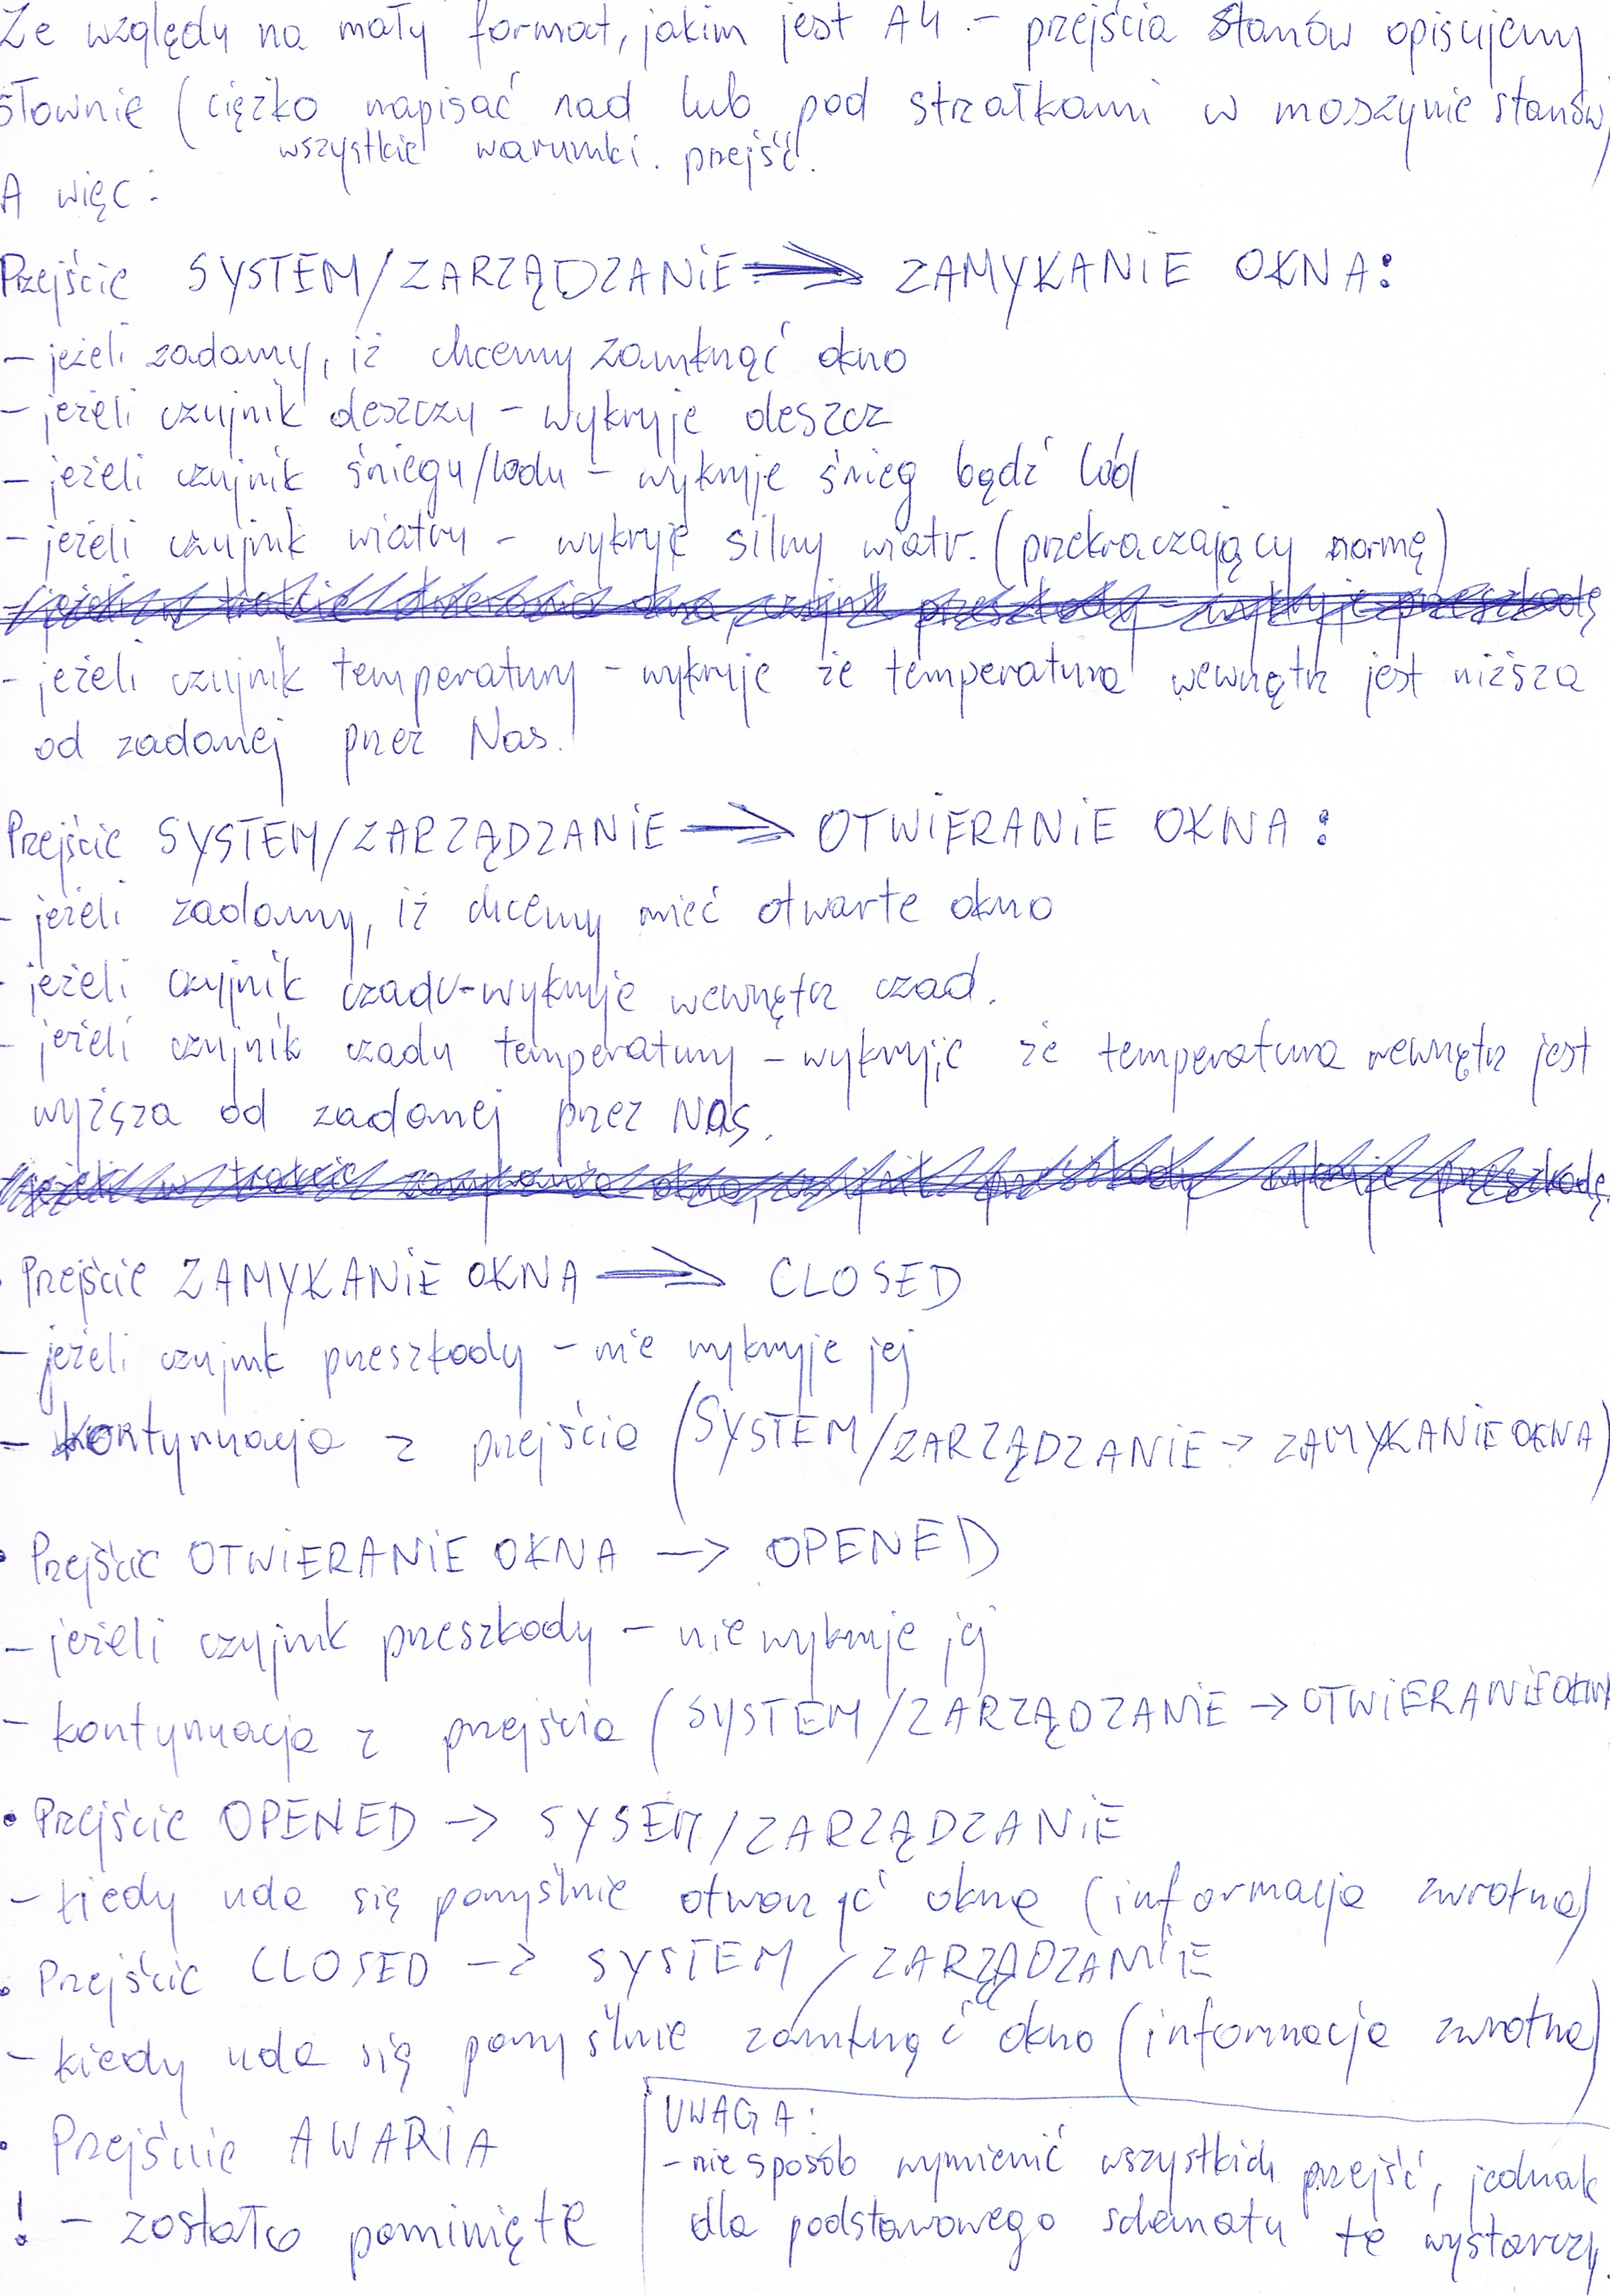 Ze względu na mały format, jakim jest A4 - przejścia stanów opisujemy
słownie (ciężko napisać nad lub pod strzałkami w maszynie stanów)
wszystkie warunki. przejść.
A więc:
Przejście SYSTEM/ZARZĄDZANIE => ZAMYKANIE OKNA:
- jeżeli zadamy, iż chcemy zamknąć okno
- jeżeli czujnik deszczu - wykryje deszcz
- jeżeli czujnik śniegu/lodu - wykryje śnieg bądź lód
- jeżeli czujnik wiatru - wykryje silny wiatr. (przekraczający normę)
jeżeli w trakcie otwierania okna, czujnik przeszkody - wykryje przeszkodę
- jeżeli czujnik temperatury - wykryje że temperatura wewnątrz jest niższa
od zadanej przez Nas.
Przejście SYSTEM/ZARZĄDZANIE => OTWIERANIE OKNA:
- jeżeli zadamy, iż chcemy mieć otwarte okno
- jeżeli czujnik czadu - wykryje wewnątrz czad.
- jeżeli czujnik czadu temperatury - wykryje że temperatura wewnątrz jest
wyższa od zadanej przez Nas.
jeżeli w trakcie zamykania okna, czujnik przeszkody wykryje przeszkodę.
• Przejście ZAMYKANIE OKNA => CLOSED
- jeżeli czujnik przeszkody - nie wykryje jej
- kontynuacja z przejścia (SYSTEM/ZARZĄDZANIE -> ZAMYKANIE OKNA)
• Przejście OTWIERANIE OKNA -> OPENED
- jeżeli czyjnik przeszkody - nie wykryje jej
- kontynuacja z przejścia (SYSTEM/ZARZĄDZANIE -> OTWIERANIE OKNA
• Przejście OPENED -> SYSEM/ZARZĄDZANIE
- kiedy uda się pomyślnie otworzyć okno (informacja zwrotna)
• Przejście CLOSED -> SYSTEM/ZARZĄDZANIE
- kiedy uda się pomyślnie zamknąć okno (informacja zwrotna)
• Przejście AWARIA
! - zostało pominięte
UWAGA:
- nie sposób wymienić wszystkich przejść, jednak
dla podstawowego schematu te wystarczy.